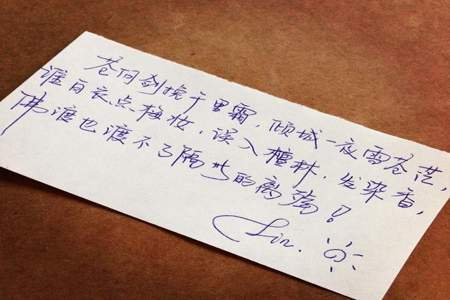 苍何剑挽千里霜,倾城一夜雪苍茫,
谁白衣点梅妆,误入檀林,发染香,
佛渡也渡不了隔世的离殇!